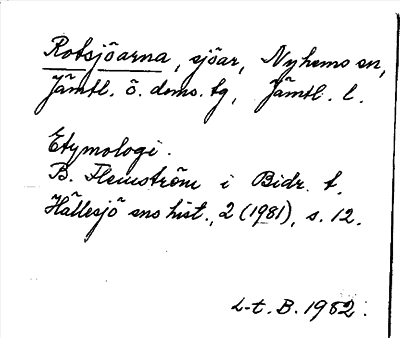 Rotsjöarna, sjöar, Nyhems sn,
Jämtl. ö. doms. tg, Jämtl. l.
Etymologi.
B. Flemström i Bidr. t.
Hällesjö sns hist., 2 (1981), s. 12.
L-t. B. 1982.